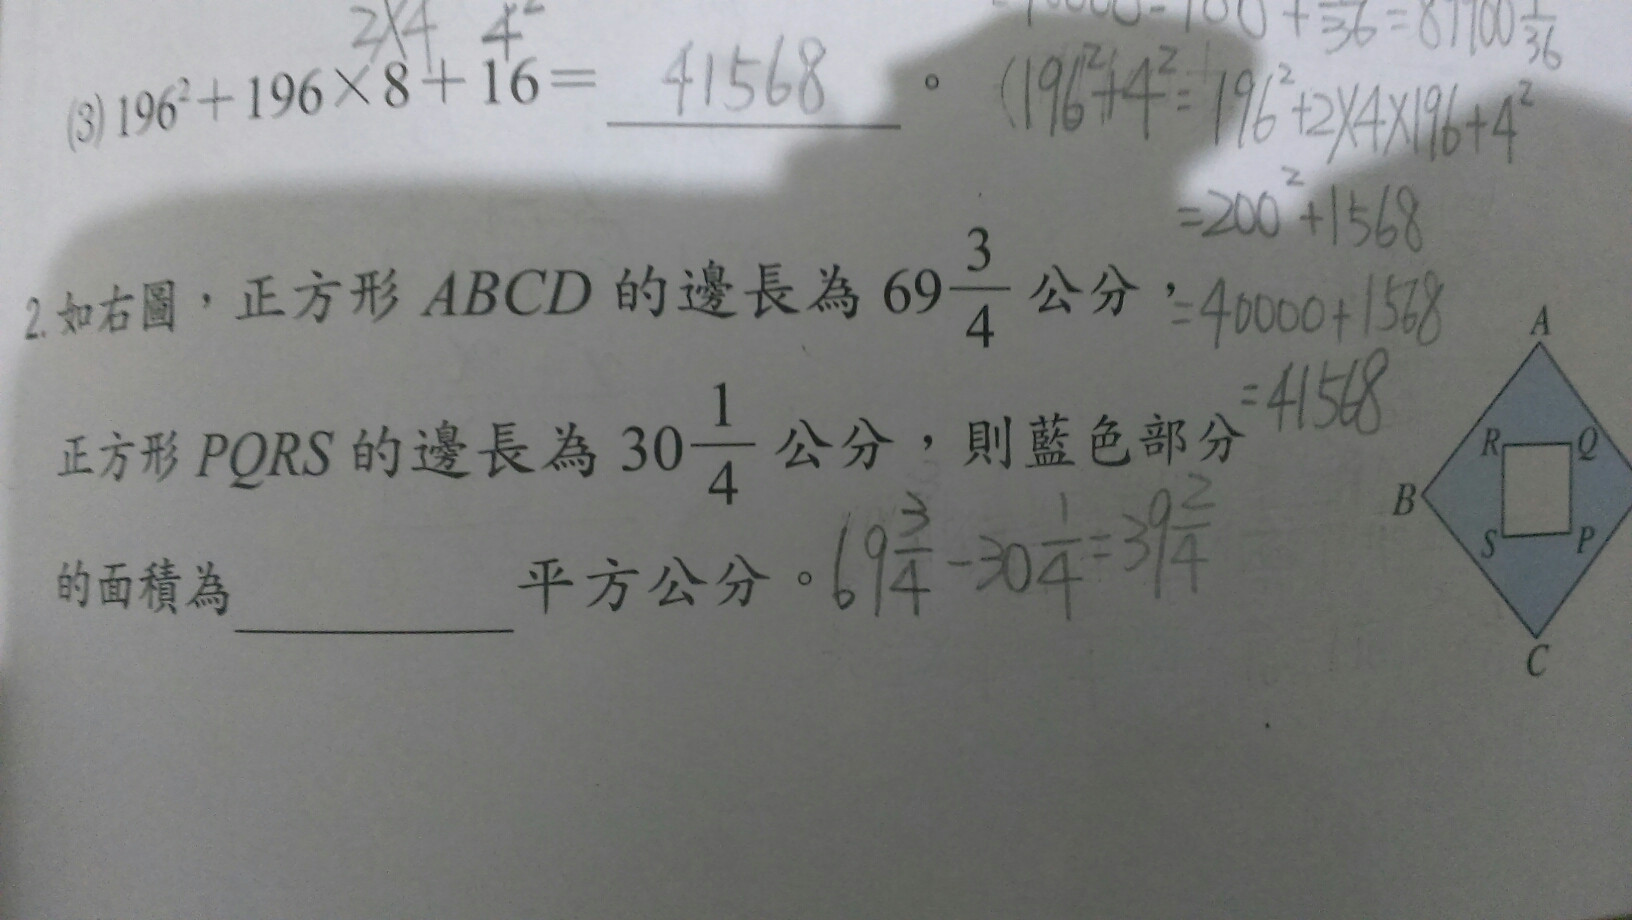 2×4 4²
(3) 196²+196×8+16= 41568 。
+ 1/36 = 87700 1/36
(196²+4² = 196²+2×4×196+4²
=200²+1568
=40000+1568
=41568
2. 如右圖，正方形 ABCD 的邊長為 69 3/4 公分，
正方形 PQRS 的邊長為 30 1/4 公分，則藍色部分
的面積為________平方公分。
69 3/4 - 30 1/4 = 39 2/4
A
R Q
B
S P
C